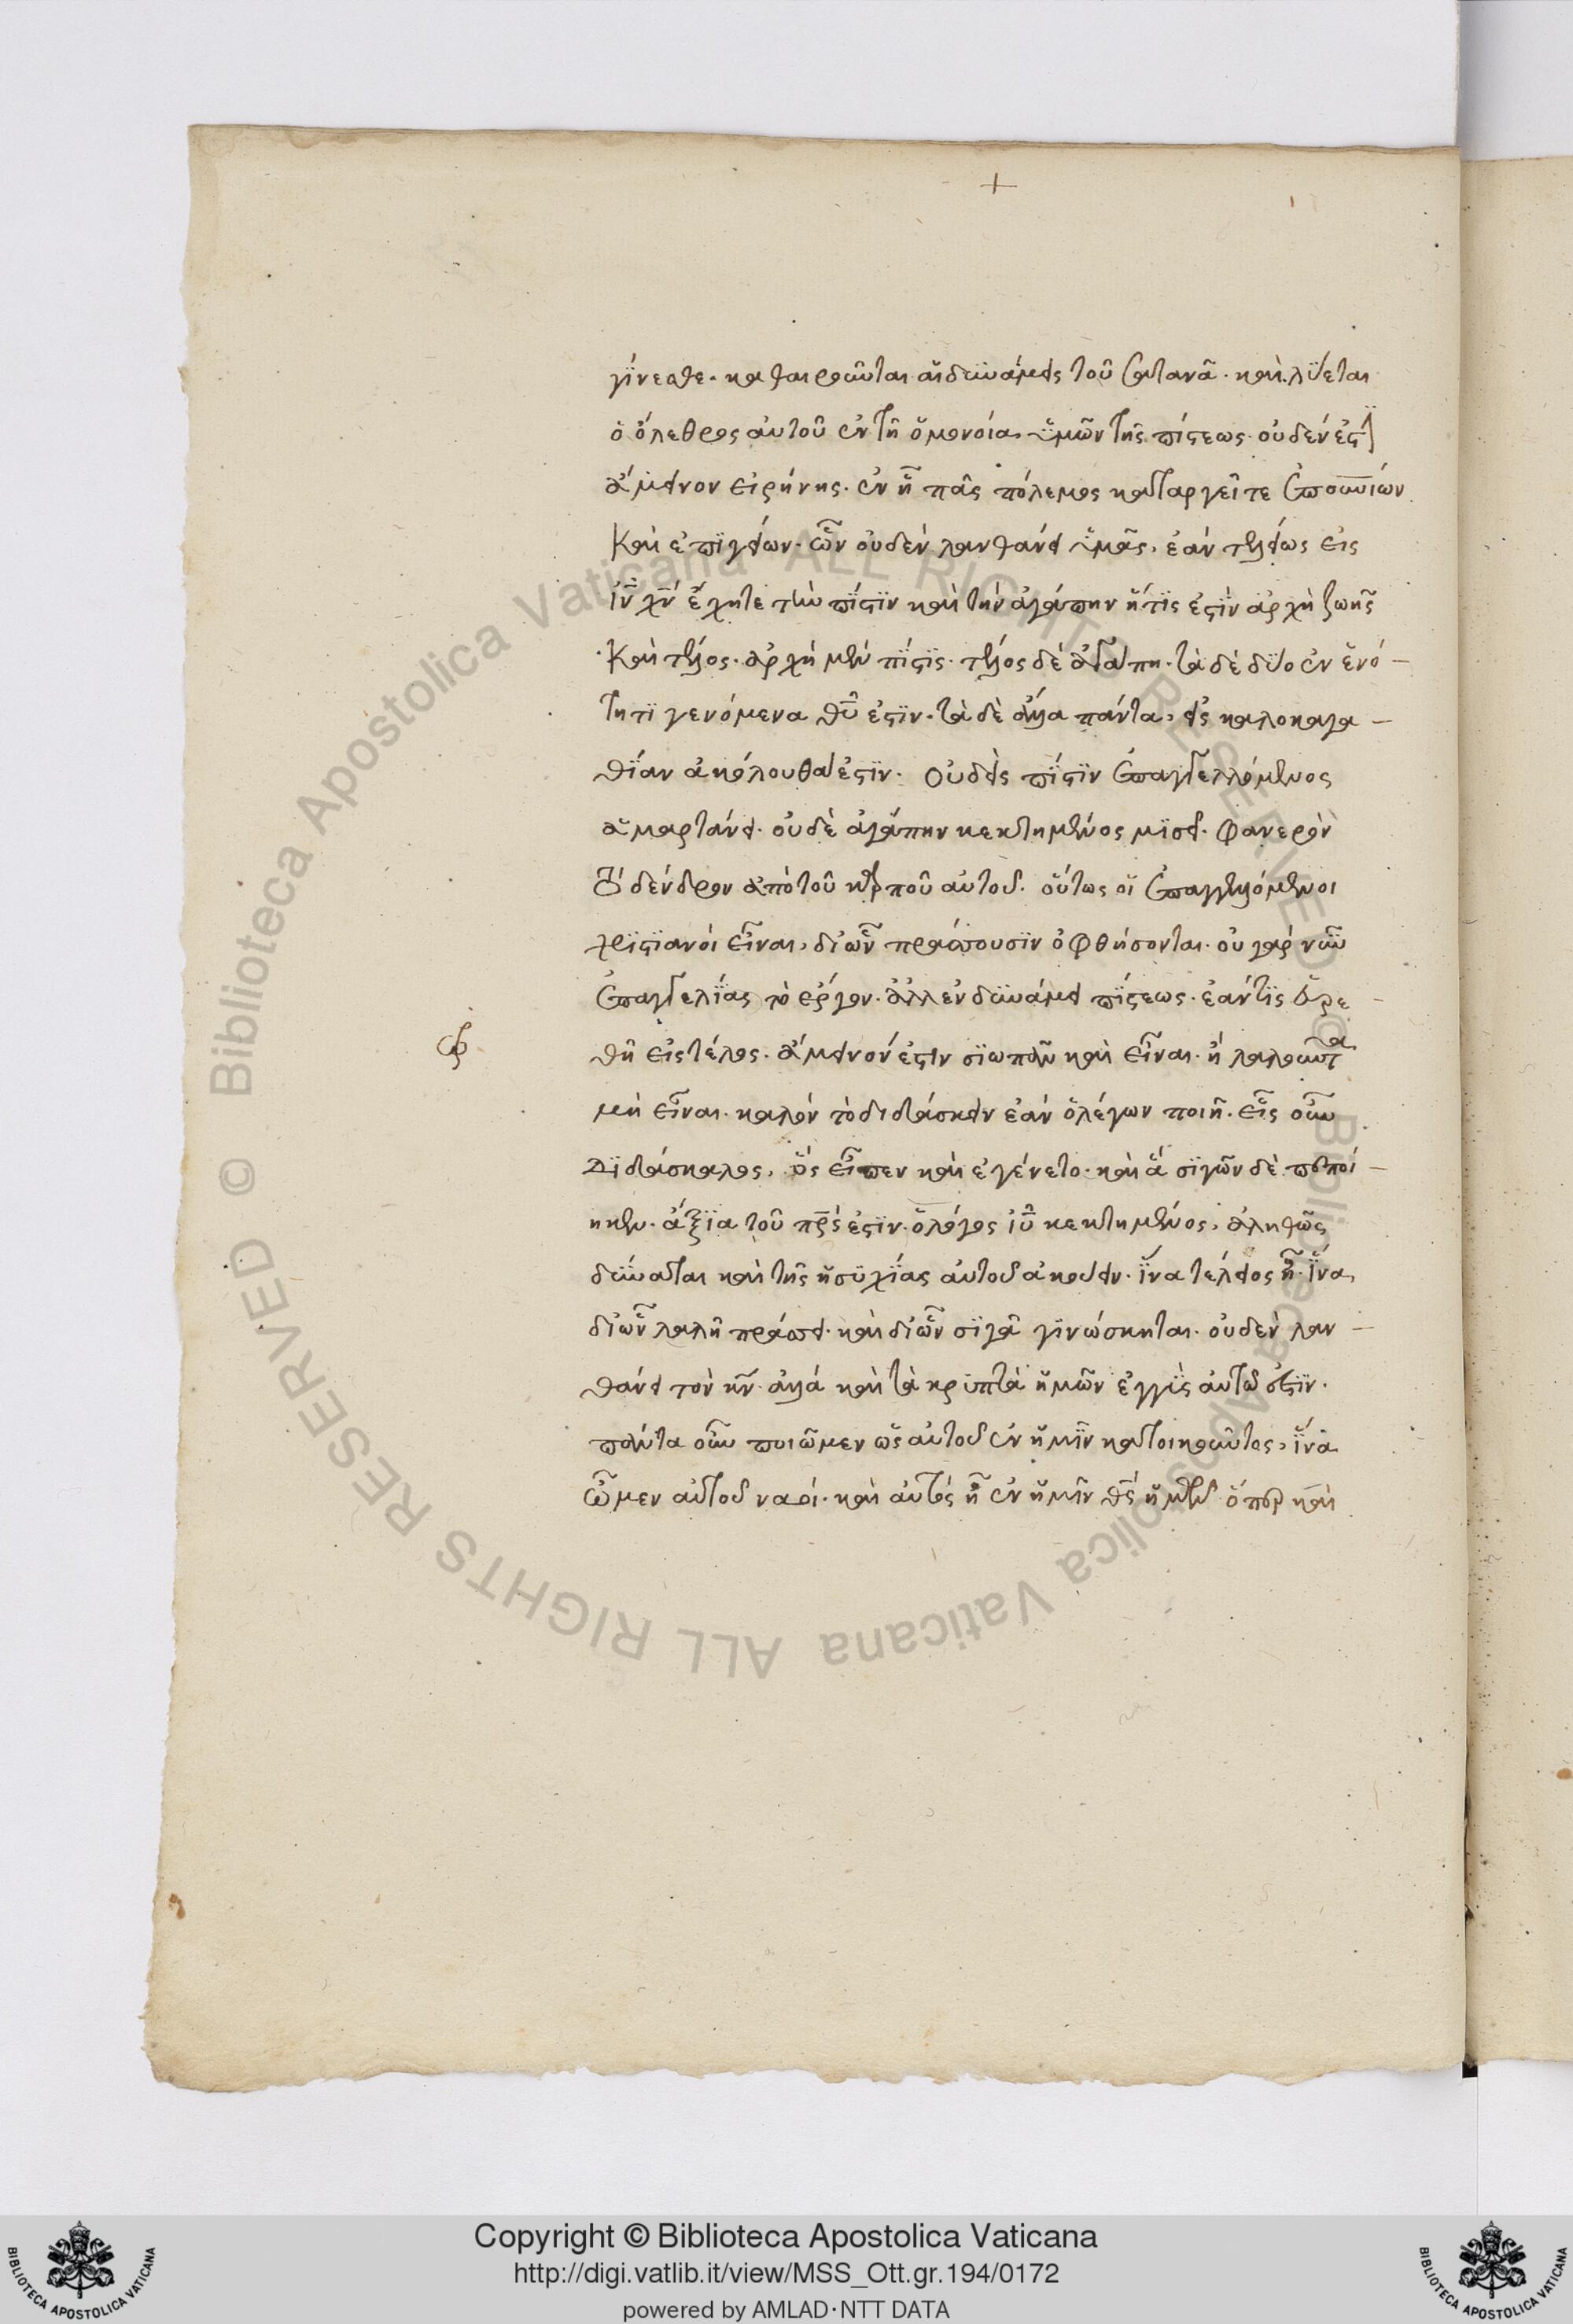 +
γίνεσθε· καθαιροῦνται αἱ δυνάμεις τοῦ σατανᾶ· καὶ λύεται
ὁ ὄλεθρος αὐτοῦ ἐν τῇ ὁμονοίᾳ ὑμῶν τῆς πίστεως· οὐδέν ἐστιν
ἄμεινον εἰρήνης· ἐν ᾗ πᾶς πόλεμος καταργεῖτε ἐπουνίων
καὶ ἐπιγείων· ὧν οὐδὲν λανθάνει ὑμᾶς, ἐὰν τελείως εἰς
ιν χν ἔχητε τὴν πίστιν καὶ τὴν ἀγάπην ἥτις ἐστὶν ἀρχὴ ζωῆς
καὶ τέλος· ἀρχὴ μὲν πίστις· τέλος δὲ ἀγάπη· τὰ δὲ δύο ἐν ἑνό–
τητι γενόμενα θυ ἐστιν· τὰ δὲ ἄλλα πάντα, εἰς καλοκαγα–
θίαν ἀκόλουθά ἐστιν· οὐδεὶς πίστιν ἐπαγγελλόμενος
ἁμαρτάνει· οὐδὲ ἀγάπην κεκτημένος μισεῖ· φανερὸν
τὸ δένδρον ἀπὸ τοῦ καρποῦ αὐτοῦ· οὕτως οἱ ἐπαγγελλόμενοι
χριστιανοί εἶναι, δι' ὧν πράσσουσιν ὀφθήσονται· οὐ γάρ νῦν
ἐπαγγελίας τὸ ἔργον· ἀλλ' ἐν δυνάμει πίστεως· ἐάν τις εὑρε–
θῇ εἰς τέλος· ἄμεινόν ἐστιν σιωπᾶν καὶ εἶναι· ἢ λαλοῦντα
μὴ εἶναι· καλόν τὸ διδάσκειν ἐάν ὁ λέγων ποιῇ· εἷς οὖν
διδάσκαλος, ὃς εἶπεν καὶ ἐγένετο· καὶ ἃ σιγῶν δὲ πεποί–
ηκεν· ἄξια τοῦ πρς ἐστιν· ὁ λόγον ιυ κεκτημένος, ἀληθῶς
δύναται καὶ τῆς ἡσυχίας αὐτοῦ ἀκούειν· ἵνα τέλειος ᾖ· ἵνα
δι' ὧν λαλῇ πράσσει· καὶ δι' ὧν σιγᾷ γινώσκηται· οὐδὲν λαν–
θάνει τὸν κν· ἀλλά καὶ τὰ κρυπτὰ ἡμῶν ἐγγὺς αὐτῷ ἐστιν·
πάντα οὖν ποιῶμεν ὡς αὐτοῦ ἐν ἡμῖν κατοικοῦντος, ἵνα
ὦμεν αὐτοῦ ναοί· καὶ αὐτός ᾖ ἐν ἡμῖν θς ἡμῶν ὅπερ καὶ
Biblioteca Apostolica Vaticana ALL RIGHTS RESERVED © Biblioteca Apostolica Vaticana ALL RIGHTS RESERVED ©
Copyright © Biblioteca Apostolica Vaticana
http://digi.vatlib.it/view/MSS_Ott.gr.194/0172
powered by AMLAD·NTT DATA
BIBLIOTECA APOSTOLICA VATICANA
BIBLIOTECA APOSTOLICA VATICANA